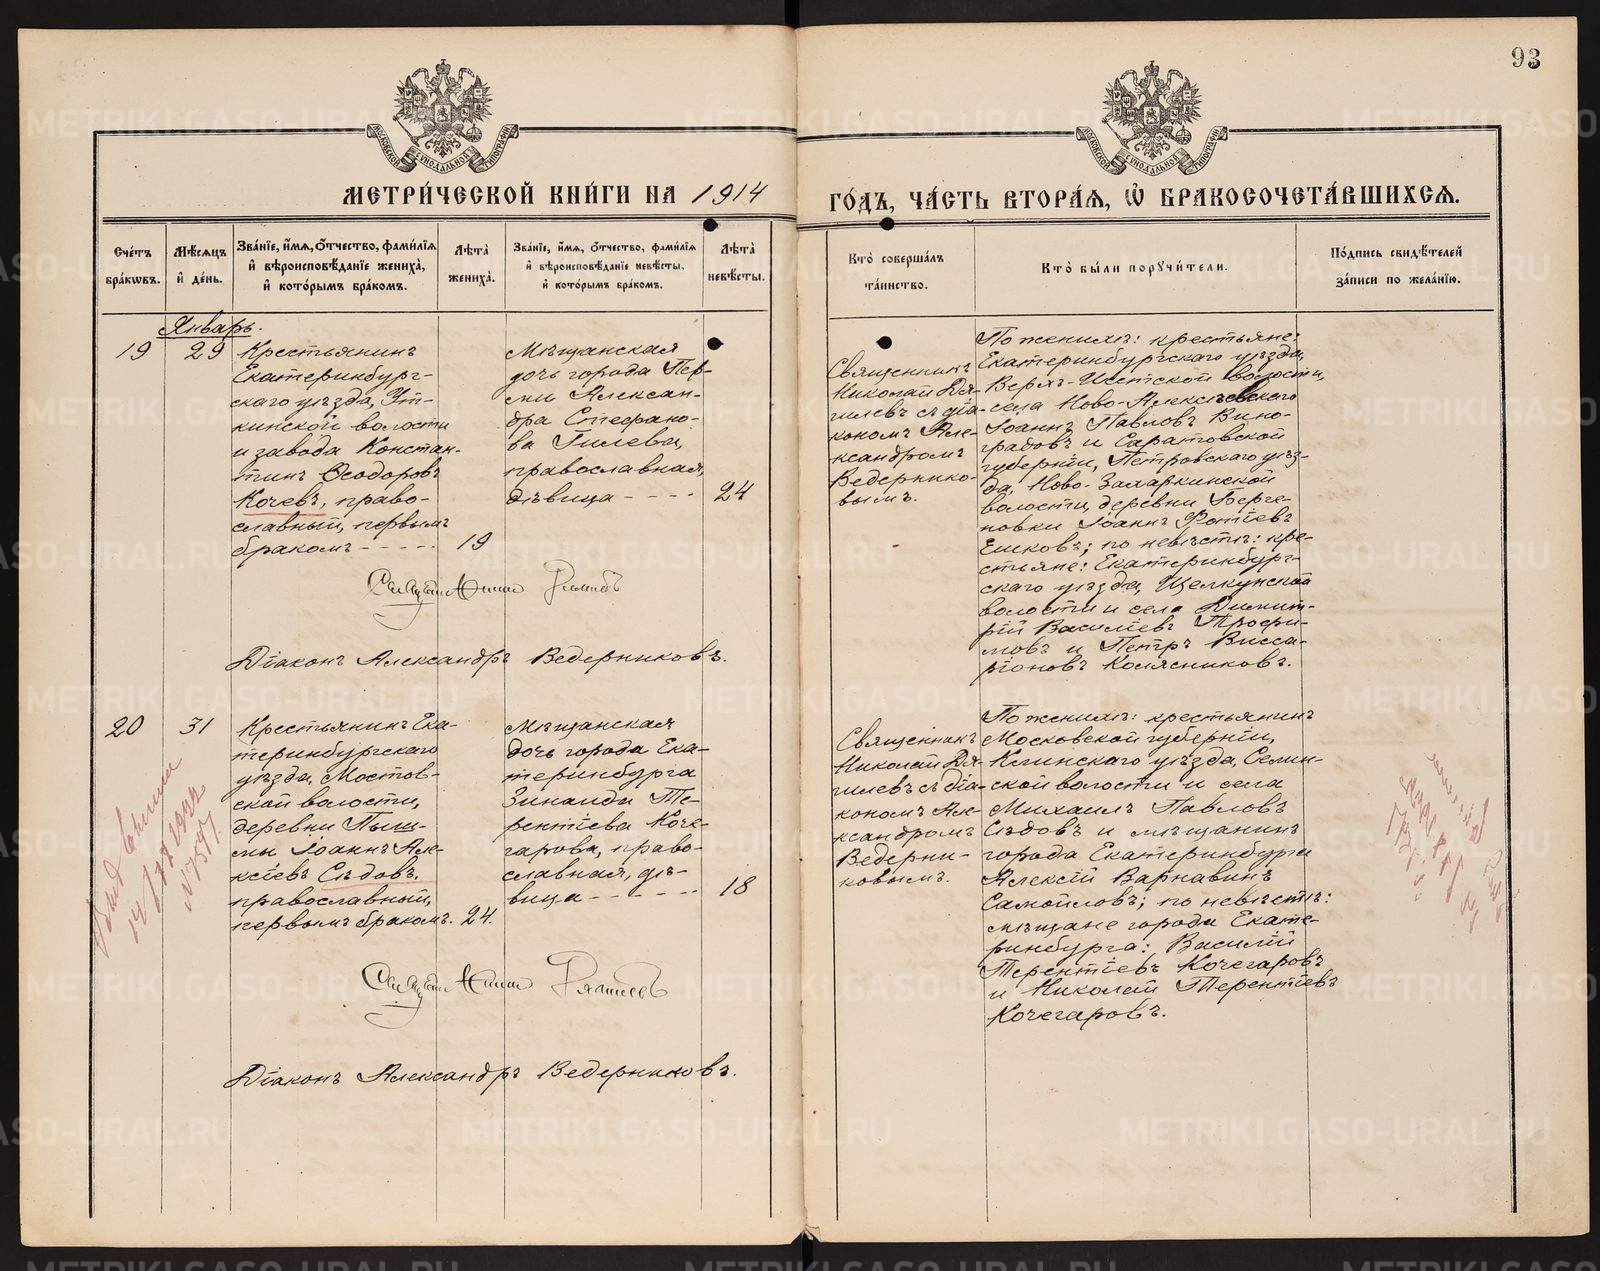 93
МЕТРИ́ЧЕСКОЙ КНИ́ГИ НА 1914
ГО́ДЪ, ЧА́СТЬ ВТОРА́Ѧ, Ѽ БРАКОСОЧЕТА́ВШИХСѦ.
МОСКОВСКОЙ СѴНОДАЛЬНОЙ ТИПОГРАФІИ
МОСКОВСКОЙ СѴНОДАЛЬНОЙ ТИПОГРАФІИ
Сче́тъ
бра́кѡвъ.
Мѣ́сѧцъ
и҆ де́нь.
Зва́нїе, и҆́мѧ, ѻ҆́тчество, фами́лїѧ
и҆ вѣроисповѣ́данїе жениха̀,
и҆ кото́рымъ бра́комъ.
Лѣ́та̀
жениха̀.
Зва́нїе, и҆́мѧ, ѻ҆́тчество, фами́лїѧ
и҆ вѣроисповѣ́данїе невѣ́сты,
и҆ кото́рымъ бра́комъ.
Лѣ́та̀
невѣ́сты.
Кто̀ соверша́лъ
та́инство.
Кто̀ бы́ли порꙋчи́тели.
По́дпись свидѣ́телей
за́писи по жела́нїю.
Январь.
19
29
Крестьянинъ
Екатеринбург-
скаго уѣзда, Ут-
кинской волости
и завода Констан-
тинъ Ѳеодоровъ
Кочевъ, право-
славный, первымъ
бракомъ - - - - -
19
Мѣщанская
дочь города Пер-
ми Алексан-
дра Стефано-
ва Гилева,
православная,
дѣвица - - - -
24
Священникъ
Николай Дя-
гилевъ съ діа-
кономъ Але-
ксандромъ
Ведернико-
вымъ.
По женихѣ: крестьяне:
Екатеринбургскаго уѣзда,
Верхъ-Исетской волости,
села Ново-Алексѣевскаго
Іоаннъ Павловъ Вино-
градовъ и Саратовской
губерніи, Петровскаго уѣз-
да, Ново-Захаркинской
волости, деревни Берге-
новки Іоаннъ Фотіевъ
Ешковъ; по невѣстѣ: кре-
стьяне: Екатеринбург-
скаго уѣзда, Щелкунской
волости и села Димит-
рій Васильевъ Трофи-
мовъ и Петръ Висса-
ріоновъ Колясниковъ.
Діаконъ Александръ Ведерниковъ.
20
31
Крестьянинъ Ека-
теринбургскаго
уѣзда, Мостов-
ской волости,
деревни Пыш-
мы Іоаннъ Але-
ксіевъ Сѣдовъ,
православный,
первымъ бракомъ.
24.
Мѣщанская
дочь города Ека-
теринбурга
Зинаида Те-
рентіева Коче-
гарова, право-
славная, дѣ-
вица - - - - -
18
Священникъ
Николай Дя-
гилевъ съ діа-
кономъ Але-
ксандромъ
Ведерни-
ковымъ.
По женихѣ: крестьянинъ
Московской губерніи,
Клинскаго уѣзда, Селин-
ской волости и села
Михаилъ Павловъ
Сѣдовъ и мѣщанинъ
города Екатеринбурга
Алексій Варнавинъ
Самойловъ; по невѣстѣ:
мѣщане города Екате-
ринбурга: Василій
Терентіевъ Кочегаровъ
и Николай Терентіевъ
Кочегаровъ.
Діаконъ Александръ Ведерниковъ.
METRIKI.GASO-URAL.RU